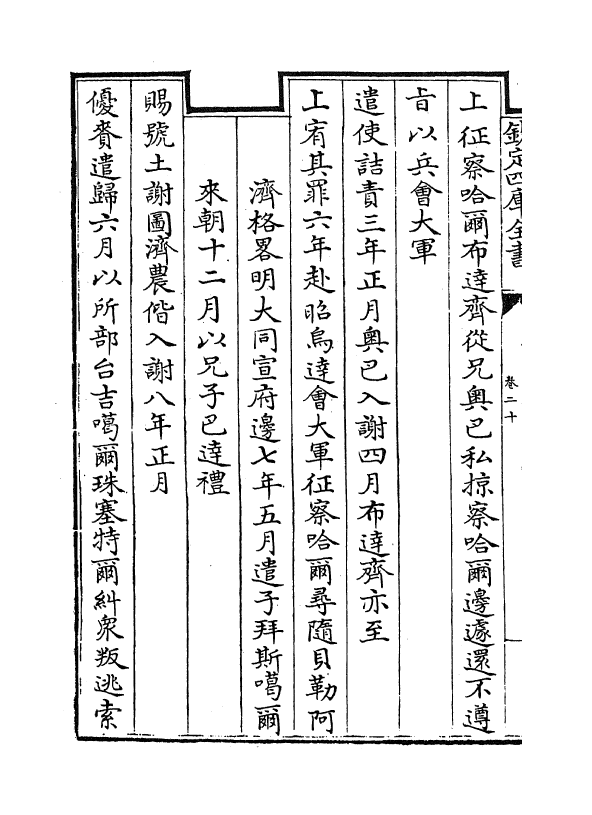 欽定四庫全書
卷二十
上征察哈爾布達齊從兄奥巴私掠察哈爾邊遽還不遵
旨以兵會大軍
遣使詰責三年正月奥巴入謝四月布達齊亦至
上宥其罪六年赴昭烏達會大軍征察哈爾尋隨貝勒阿
濟格畧明大同宣府邊七年五月遣子拜斯噶爾
來朝十二月以兄子巴達禮
賜號土謝圖濟農偕入謝八年正月
優賚遣歸六月以所部台吉噶爾珠塞特爾糾衆叛逃索